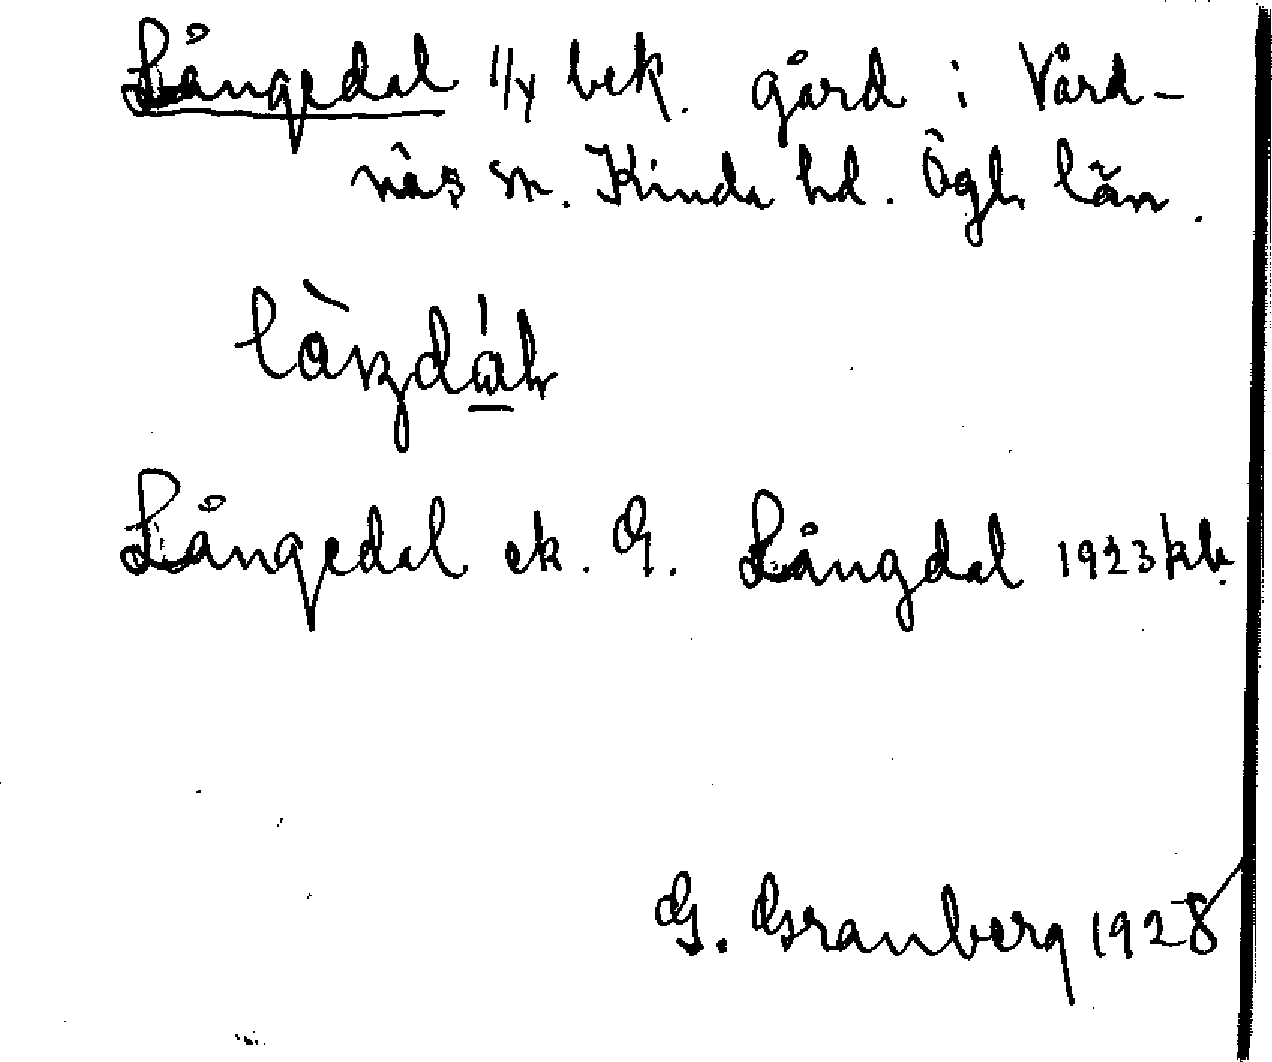 Långedal 1/4 bek. gård i Vård-
näs sn. Kinda hd. Ögl. län.
Långedal ek. G. Långdal 1923 kb.
G. Granberg 1928